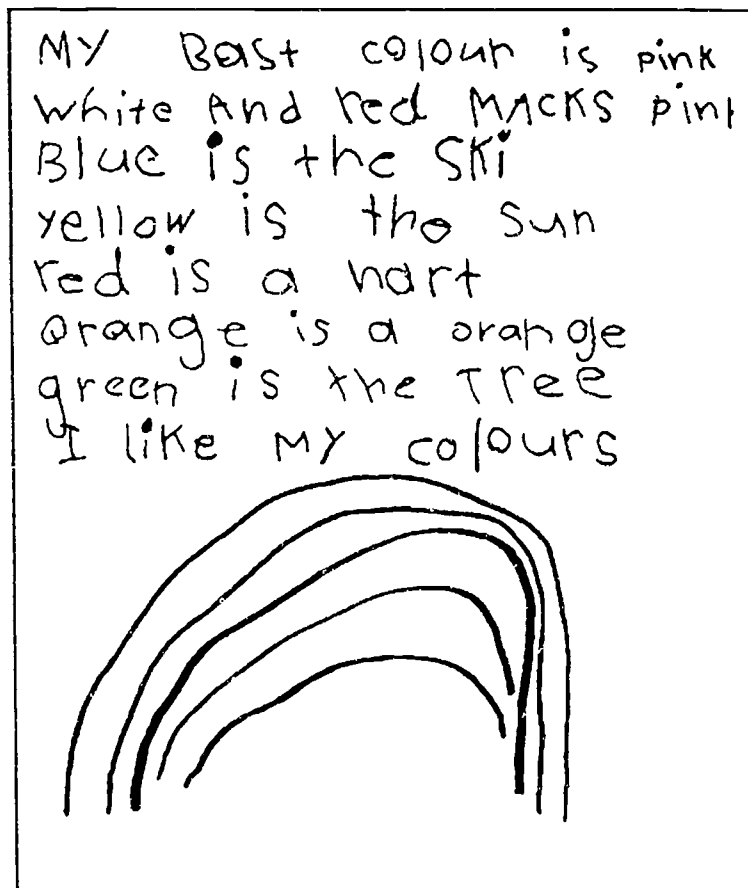 MY Bast colour is pink
white And red MACKS pink
Blue is the Ski
yellow is the sun
red is a hart
orange is a orange
green is the Tree
I like MY colours